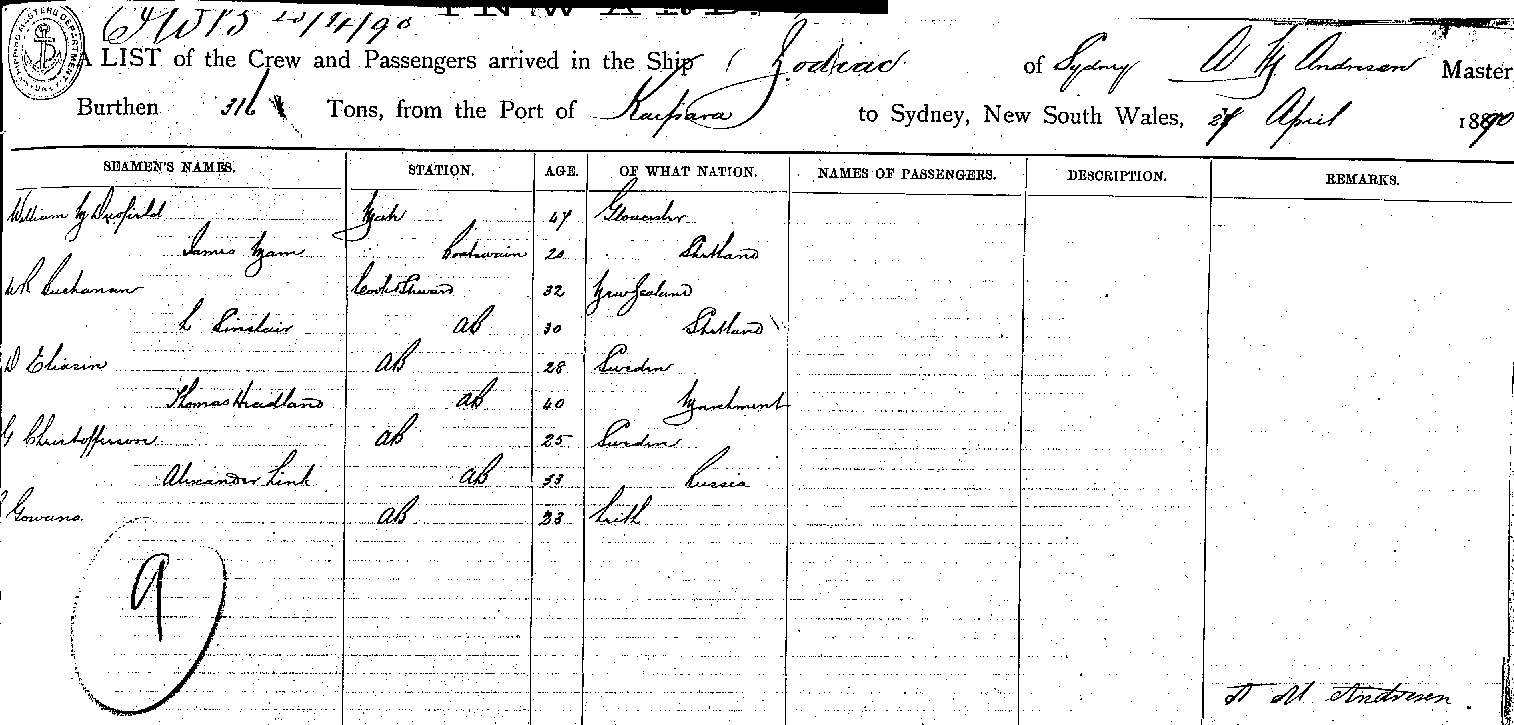 INWARD.
A LIST of the Crew and Passengers arrived in the Ship Zodiac of Sydney A M Andresen Master
Burthen 316 Tons, from the Port of Kaipara to Sydney, New South Wales, April 1890
SEAMEN'S NAMES. STATION. AGE. OF WHAT NATION. NAMES OF PASSENGERS. DESCRIPTION. REMARKS.
William M Mate 47 Gloucester
James Boatswain 20 Shetland
W R Buchanan Cook & Steward 32 New Zealand
L Sinclair AB 30 Shetland
D Eliasin AB 28 Sweden
Thomas Headland AB 40 Parchment
G Christofferson AB 25 Sweden
Alexander Link AB 53 Russia
Gowans AB 23 Leith
9
A M Andresen